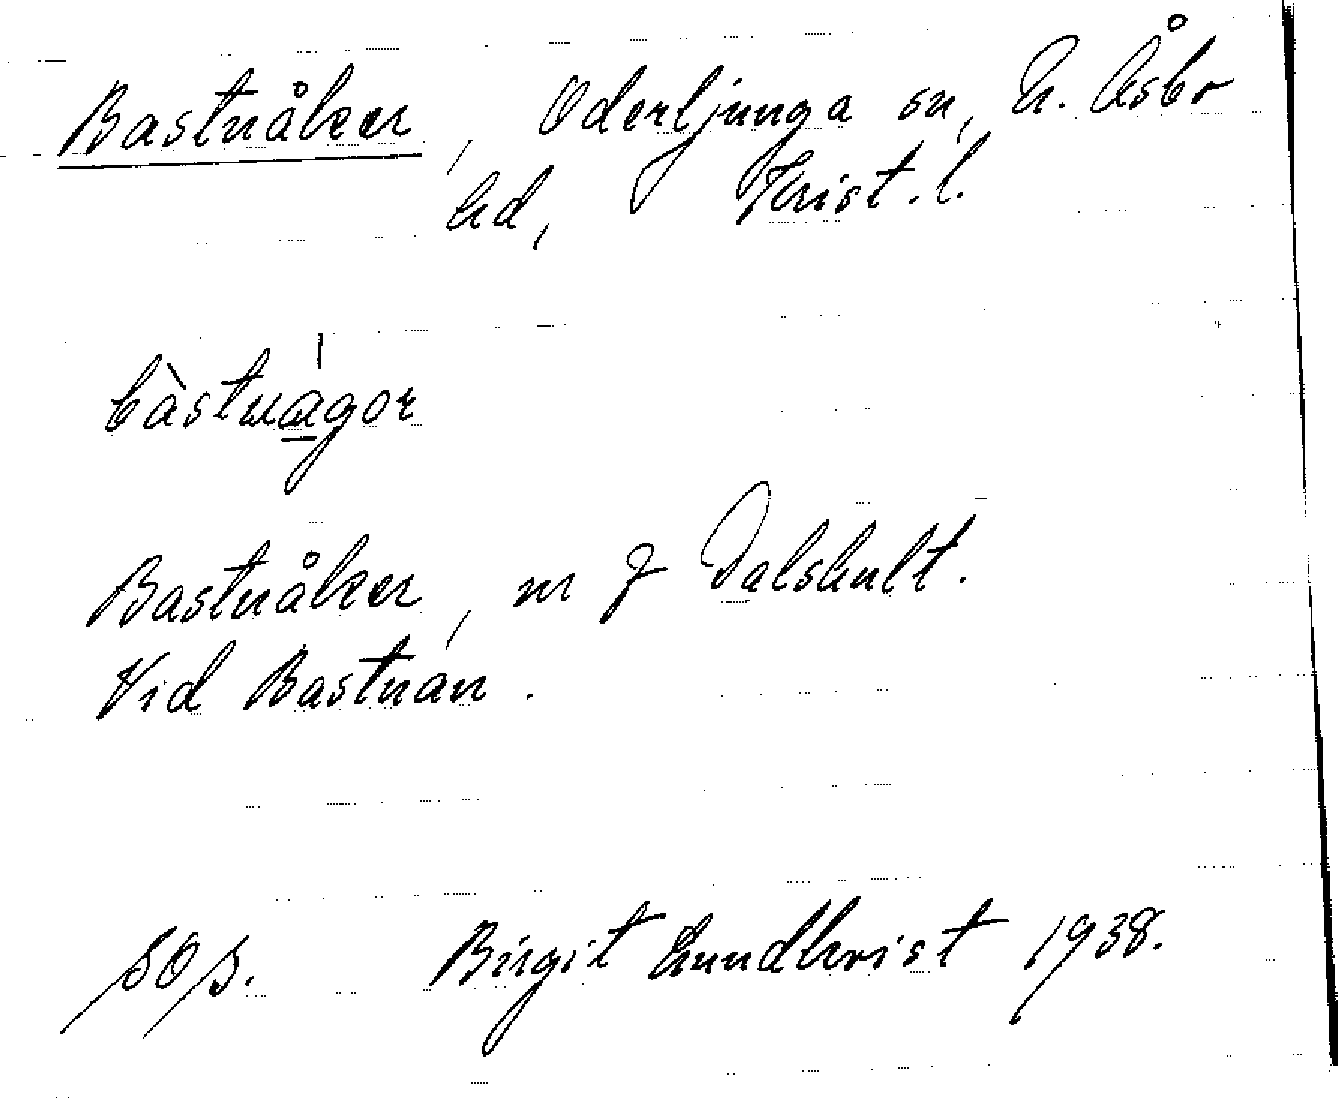 Bastnåker, Oderljunga sn, N. Åsbo
hd, Krist. l.
bàstnågor
Bastnåker, m f Dalshult.
Vid Bastnån.
SOS. Birgit Lundkvist 1938.